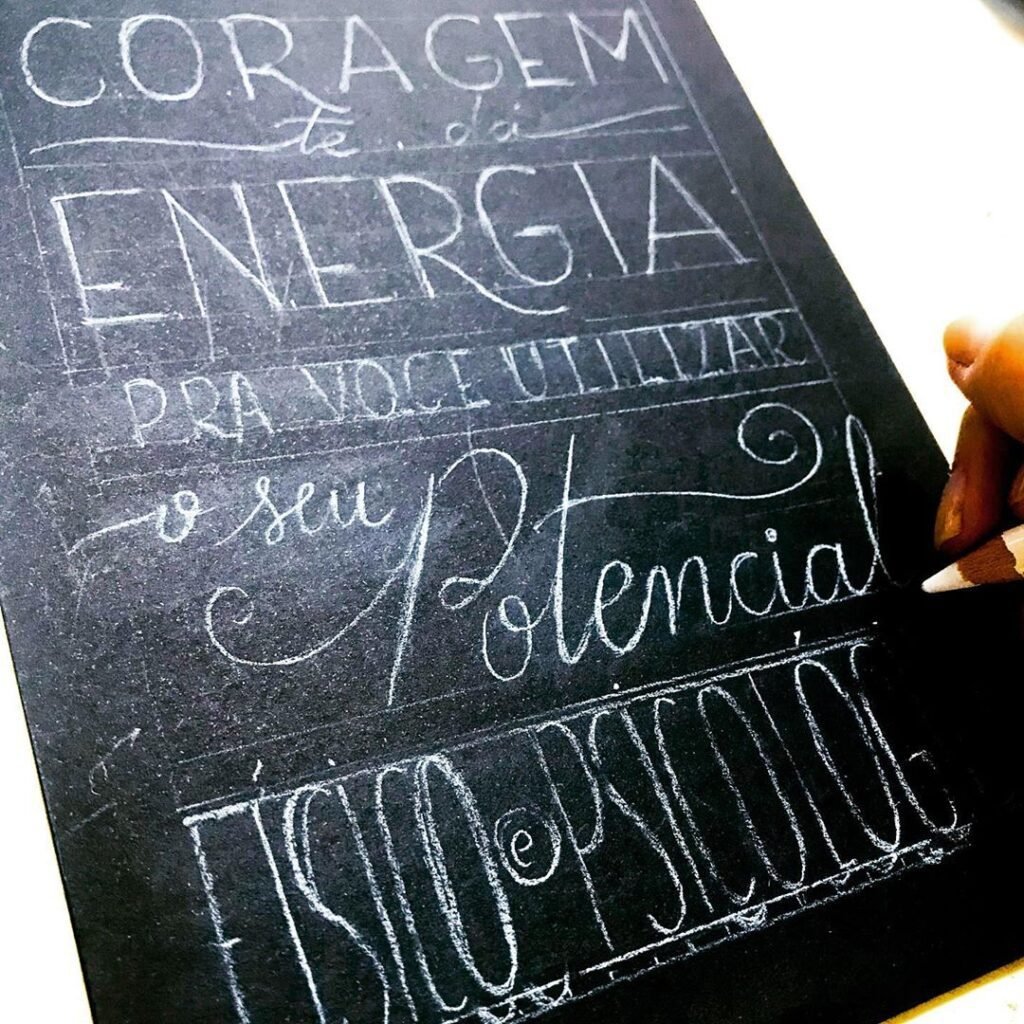 CORAGEM
te dá
ENERGIA
PRA VOCE UTILIZAR
o seu Potencial
FÍSICO e PSICOLÓG